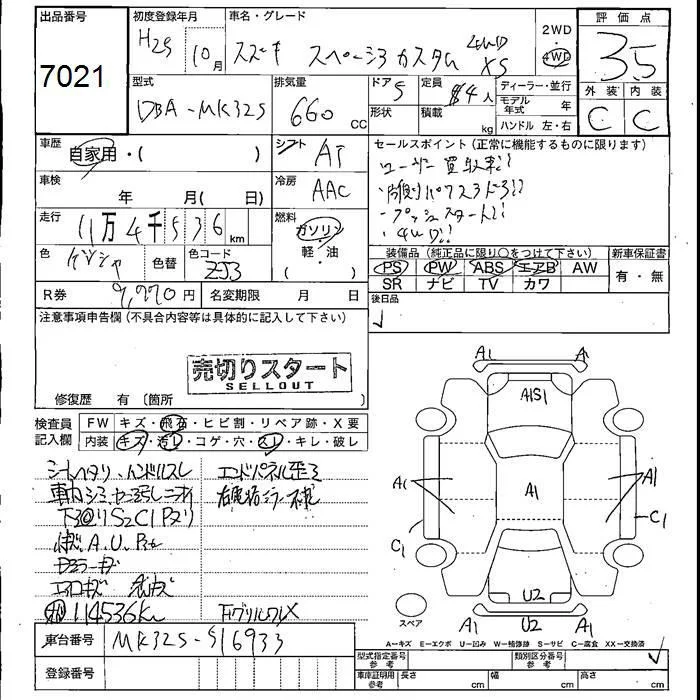 出品番号
7021
初度登録年月
H25 10月
車名・グレード
スズキ スペーシアカスタム 4WD XS
2WD
4WD
評価点
3.5
外装 内装
C C
型式
DBA-MK32S
排気量
660 cc
ドア
5
形状
定員
4人
積載
kg
ディーラー・並行
モデル年式 年
ハンドル 左・右
車歴
自家用・( )
シフト
AT
車検
年 月( 日)
冷房
AAC
走行
11万4千536 km
燃料
ガソリン・軽・油
( )
色
色替
色コード
ZJ3
R券
円
名変期限 月 日
セールスポイント(正常に機能するものに限ります)
ユーザー買取車!!
・プッシュスタート!!
・4WD!!
装備品(純正品に限り○をつけて下さい)
新車保証書
PS PW ABS エアB AW
SR ナビ TV カワ
有・無
後日品
注意事項申告欄(不具合内容等は具体的に記入して下さい)
売切りスタート
SELLOUT
修復歴 有(箇所 )
検査員記入欄
FW キズ・飛石・ヒビ割・リペア跡・X要
内装 キズ・汚レ・コゲ・穴・スレ・キレ・破レ
シートヘタリ、ハンドルスレ
エンドパネル歪ミ
下回りS2C1Pヌリ
A.U.
エアロキズ
114536Km
A1 A
A1S1
A1
A1
A1
C1
C1
U2
スペア
A1 U2 A1
A=キズ E=エクボ U=凹み W=補修跡 S=サビ C=腐食 XX=交換済
車台番号
MK32S-516933
登録番号
型式指定番号 参考
類別区分番号 参考
車庫証明用 参考
長さ cm
幅 cm
高さ cm